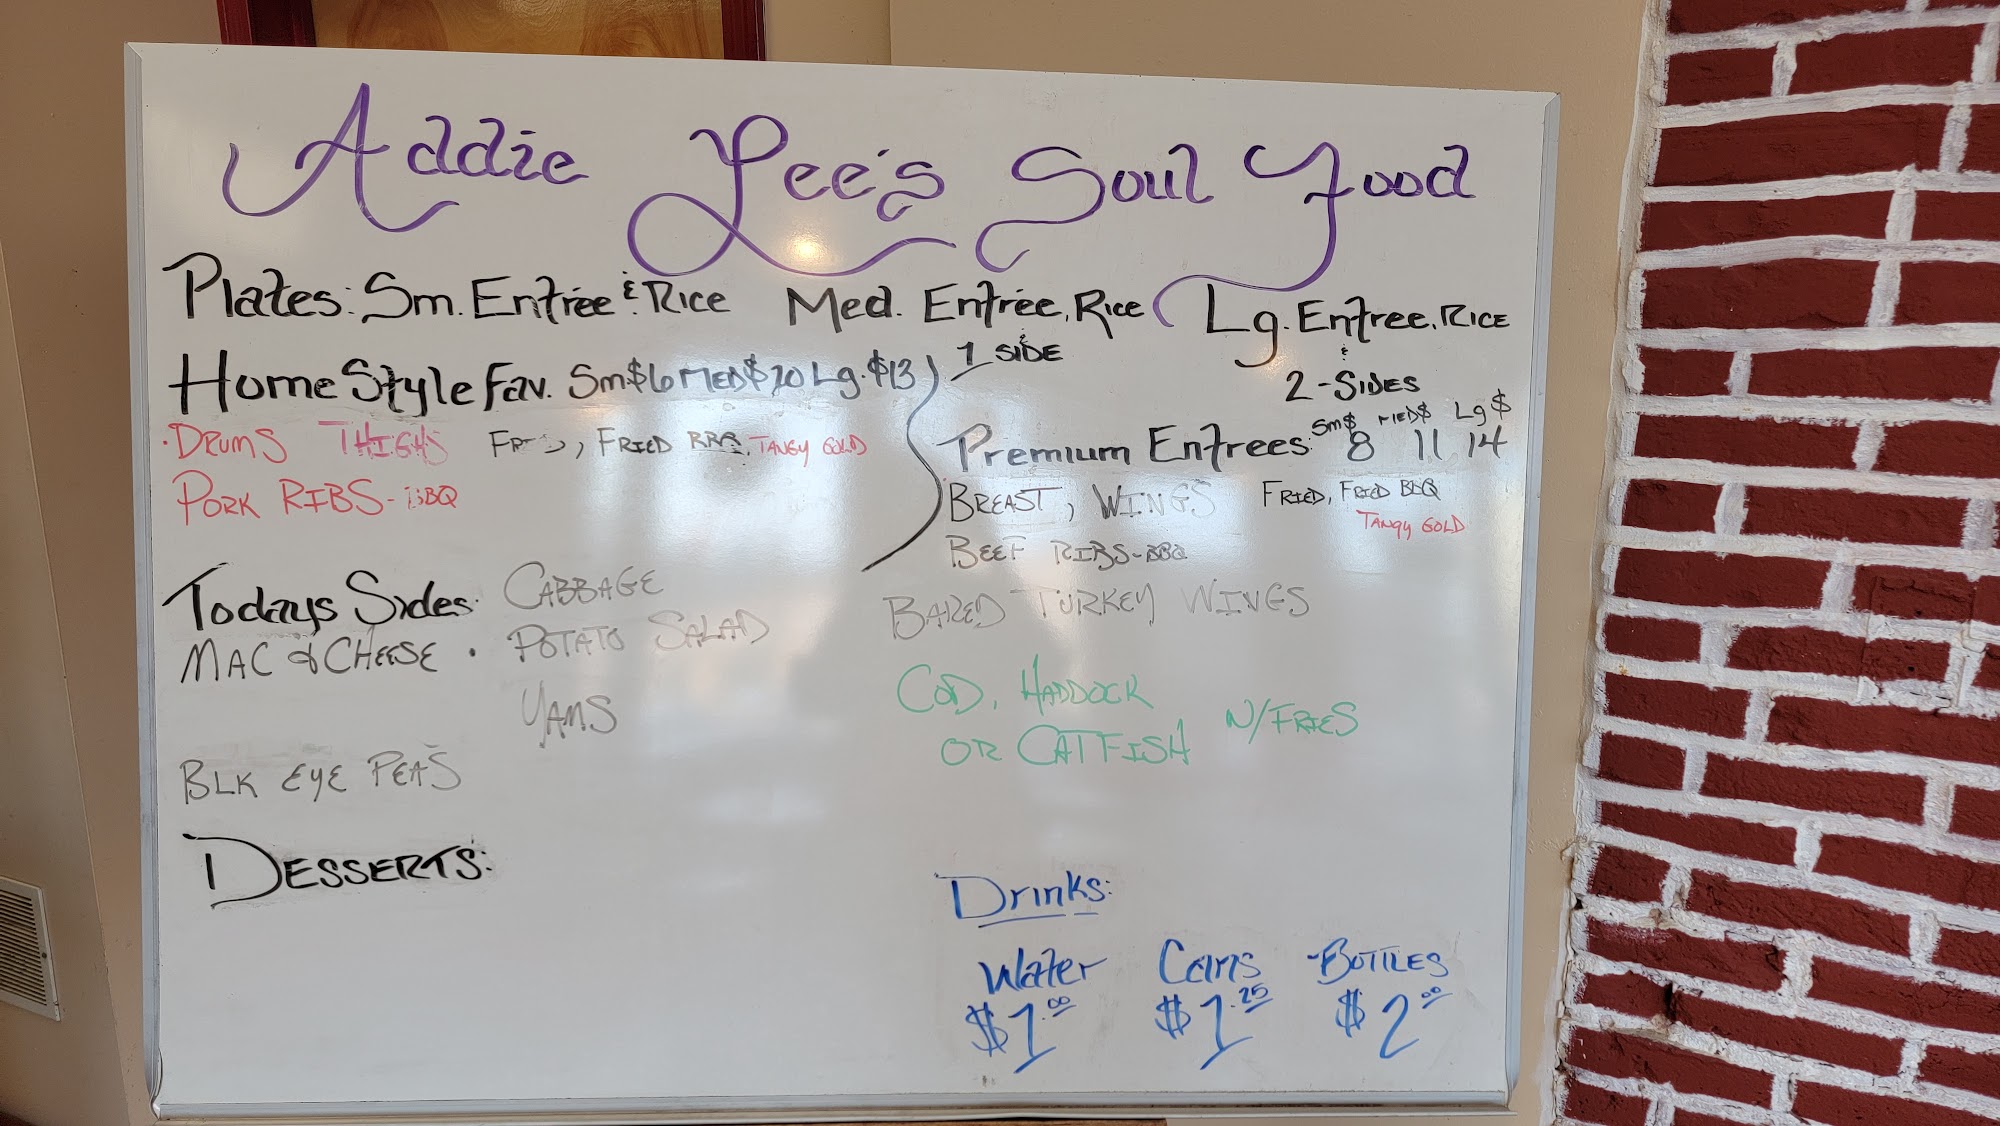 Addie Lee's Soul Food
Plates: Sm. Entrée & Rice Med. Entrée, Rice & 1 SIDE Lg. Entree, RICE & 2-SIDES
Home Style Fav. Sm $6 MED $10 Lg. $13
DRUMS THIGHS FRIED, FRIED BBQ, TANGY GOLD
PORK RIBS-BBQ
Premium Entrees: Sm$ 8 MED$ 11 Lg $ 14
BREAST, WINGS FRIED, FRIED BBQ
TANGY GOLD
BEEF RIBS-BBQ
BAKED TURKEY WINGS
COD, HADDOCK
OR CATFISH W/FRIES
Todays Sides: CABBAGE
MAC & CHEESE · POTATO SALAD
YAMS
BLK EYE PEAS
DESSERTS:
Drinks:
Water Cans BOTTLES
$1.00 $1.25 $2.00